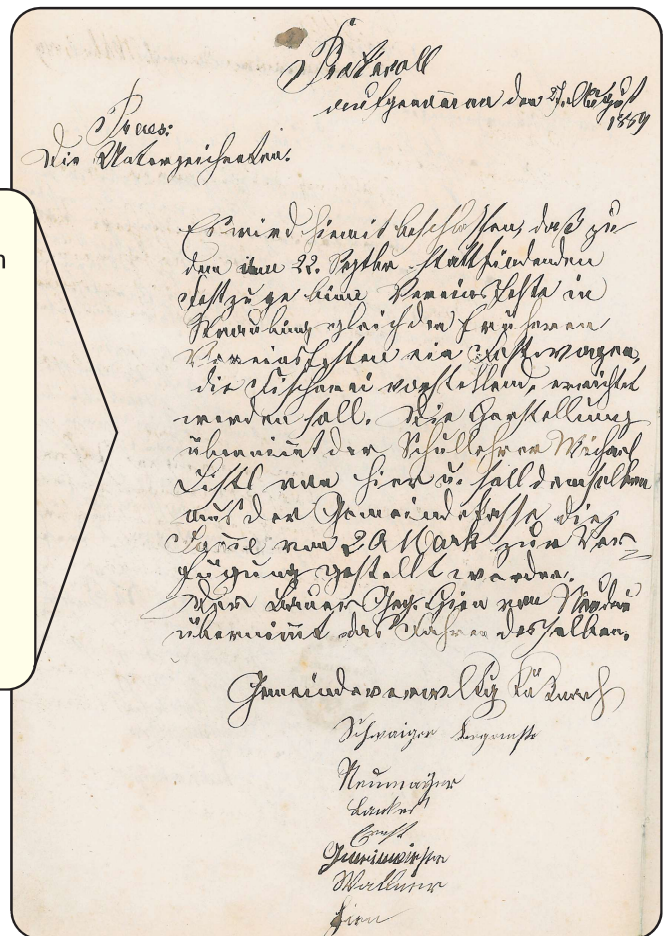 Protocoll
aufgenommen den 27. August
1889
Praes:
Die Unterzeichneten.
n
Es wird hiemit beschlossen, daß zu
dem am 22. Septbr. stattfindenden
Festzuge beim Vereinsfeste in
Straubing gleich den früheren
Vereinsfesten ein Festwagen,
die Fischerei vorstellend, errichtet
werden soll. Die Herstellung
übernimmt der Schullehrer Michael
von hier u. soll demselben
aus der Gemeindekasse die
Summe von 20 Mark zur Ver-
fügung gestellt werden.
Der Bauer von
übernimmt das Fahren desselben.
Gemeindeverwltg
Schwaiger Bürgermstr
Neumayer
Ernst
Wallner